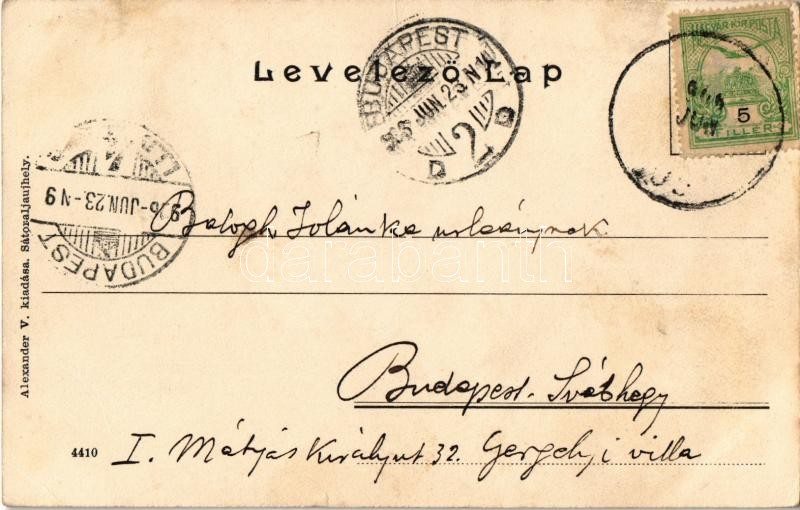 MAGYAR KIR. POSTA
5
FILLÉR
Levelező Lap
BUDAPEST
JUN. 23. N
2
D D
JUN
JUN. 23. N 9
BUDAPEST
Balogh Jolánka urleánynak
darabanth
Budapest. Svábhegy
I. Mátyás Király ut 32. Gergelyi villa
4410
Alexander V. kiadása. Sátoraljaujhely.